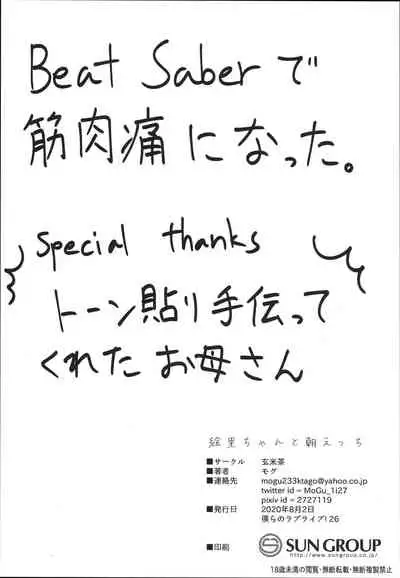 Beat Saberで
筋肉痛になった。
special thanks
トーン貼り手伝って
くれたお母さん
絵里ちゃんと朝えっち
■サークル 玄米茶
■著者 モグ
■連絡先 mogu233ktago@yahoo.co.jp
twitter id = MoGu_1i27
pixiv id = 2727119
■発行日 2020年8月2日
僕らのラブライブ! 26
■印刷 SUN GROUP
18歳未満の閲覧・無断転載・無断複製禁止